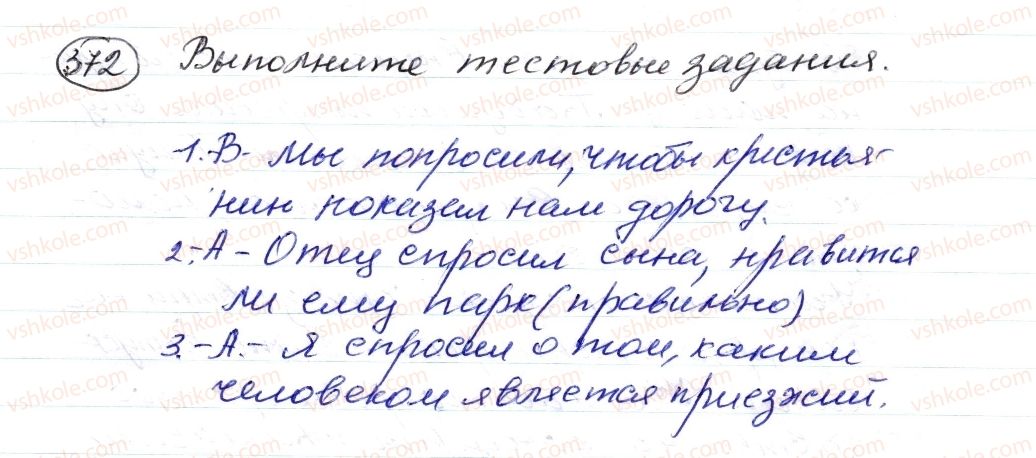 372 Выполните тестовые задания.
1.-В- Мы попросили, чтобы крестья-
нин показал нам дорогу.
2.-А - Отец спросил сына, нравится
ли ему парк (правильно)
3.-А.- Я спросил о том, каким
человеком является приезжий.